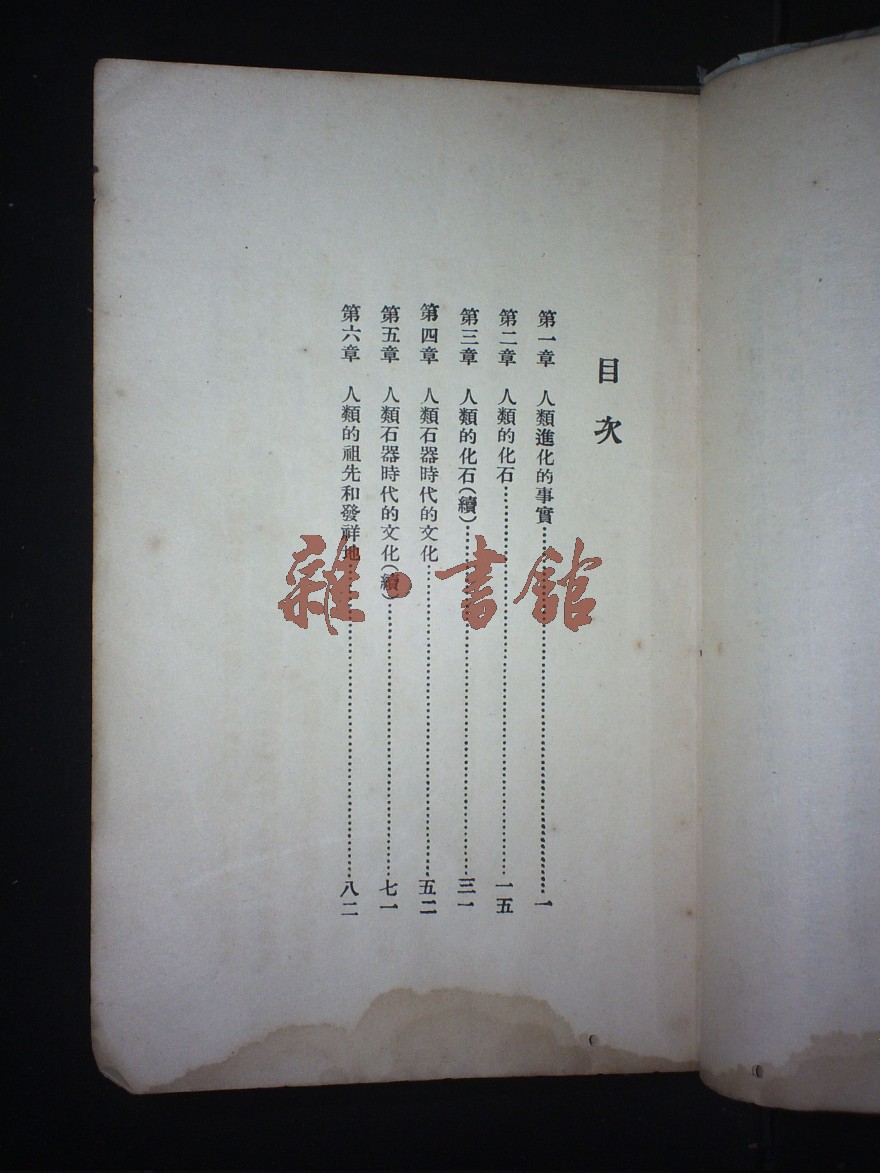 目次
第一章　人類進化的事實……一
第二章　人類的化石……一五
第三章　人類的化石（續）……三一
第四章　人類石器時代的文化……五二
第五章　人類石器時代的文化（續）……七一
第六章　人類的祖先和發祥地……八二
雜·書館